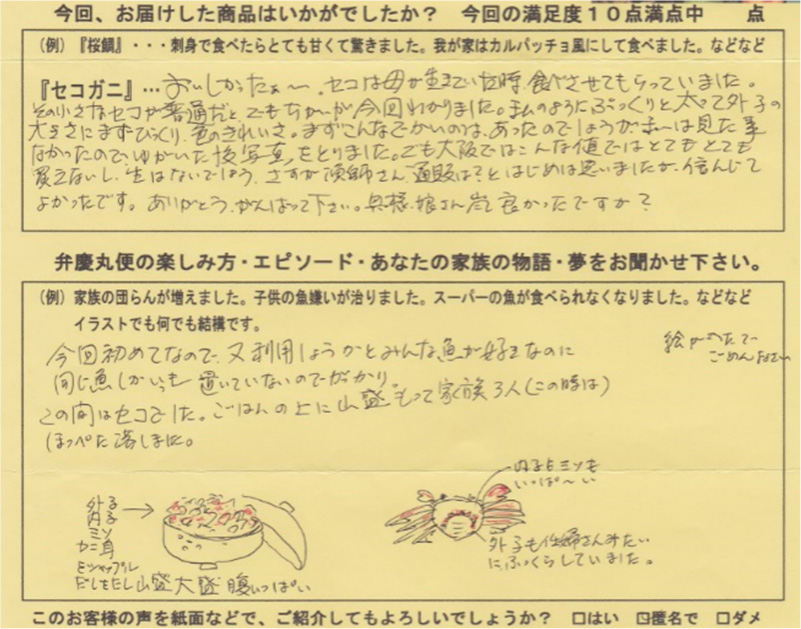 今回、お届けした商品はいかがでしたか？　今回の満足度１０点満点中　　点
（例）『桜鯛』・・・刺身で食べたらとても甘くて驚きました。我が家はカルパッチョ風にして食べました。などなど
『セコガニ』…おいしかったぁ〜。セコは母が生きていた時、食べさせてもらっていました。
その小さなセコが普通だと、でもちがいが今回わかりました。私のようにぷっくりと太って外子の
大きさにまずびっくり、色のきれいさ。まずこんなでかいのは、あったのでしょうが、は見た事
なかったので、ゆがいた後写真をとりました。でも大阪ではこんな値ではとてもとても
買えないし、生はないでしょう。さすが漁師さん、通販は？とはじめは思いましたが、信んじて
よかったです。ありがとう、がんばって下さい。奥様、娘さん、良かったですか？
弁慶丸便の楽しみ方・エピソード・あなたの家族の物語・夢をお聞かせ下さい。
（例）家族の団らんが増えました。子供の魚嫌いが治りました。スーパーの魚が食べられなくなりました。などなど
イラストでも何でも結構です。
今回初めてなので、又利用しようかとみんな魚が好きなのに
同じ魚しかいつも置いていないのでがっかり。
この間はセコでした。ごはんの上に山盛もって家族3人（この時は）
ほっぺた落しました。
絵がへたで
ごめんなさい
内子もミソも
いっぱ〜い
外子
内子
ミソ
カニ身
だしをたし山盛大盛腹いっぱい
外子も妊婦さんみたい
にふっくらしていました。
このお客様の声を紙面などで、ご紹介してもよろしいでしょうか？　□はい　☑匿名で　□ダメ